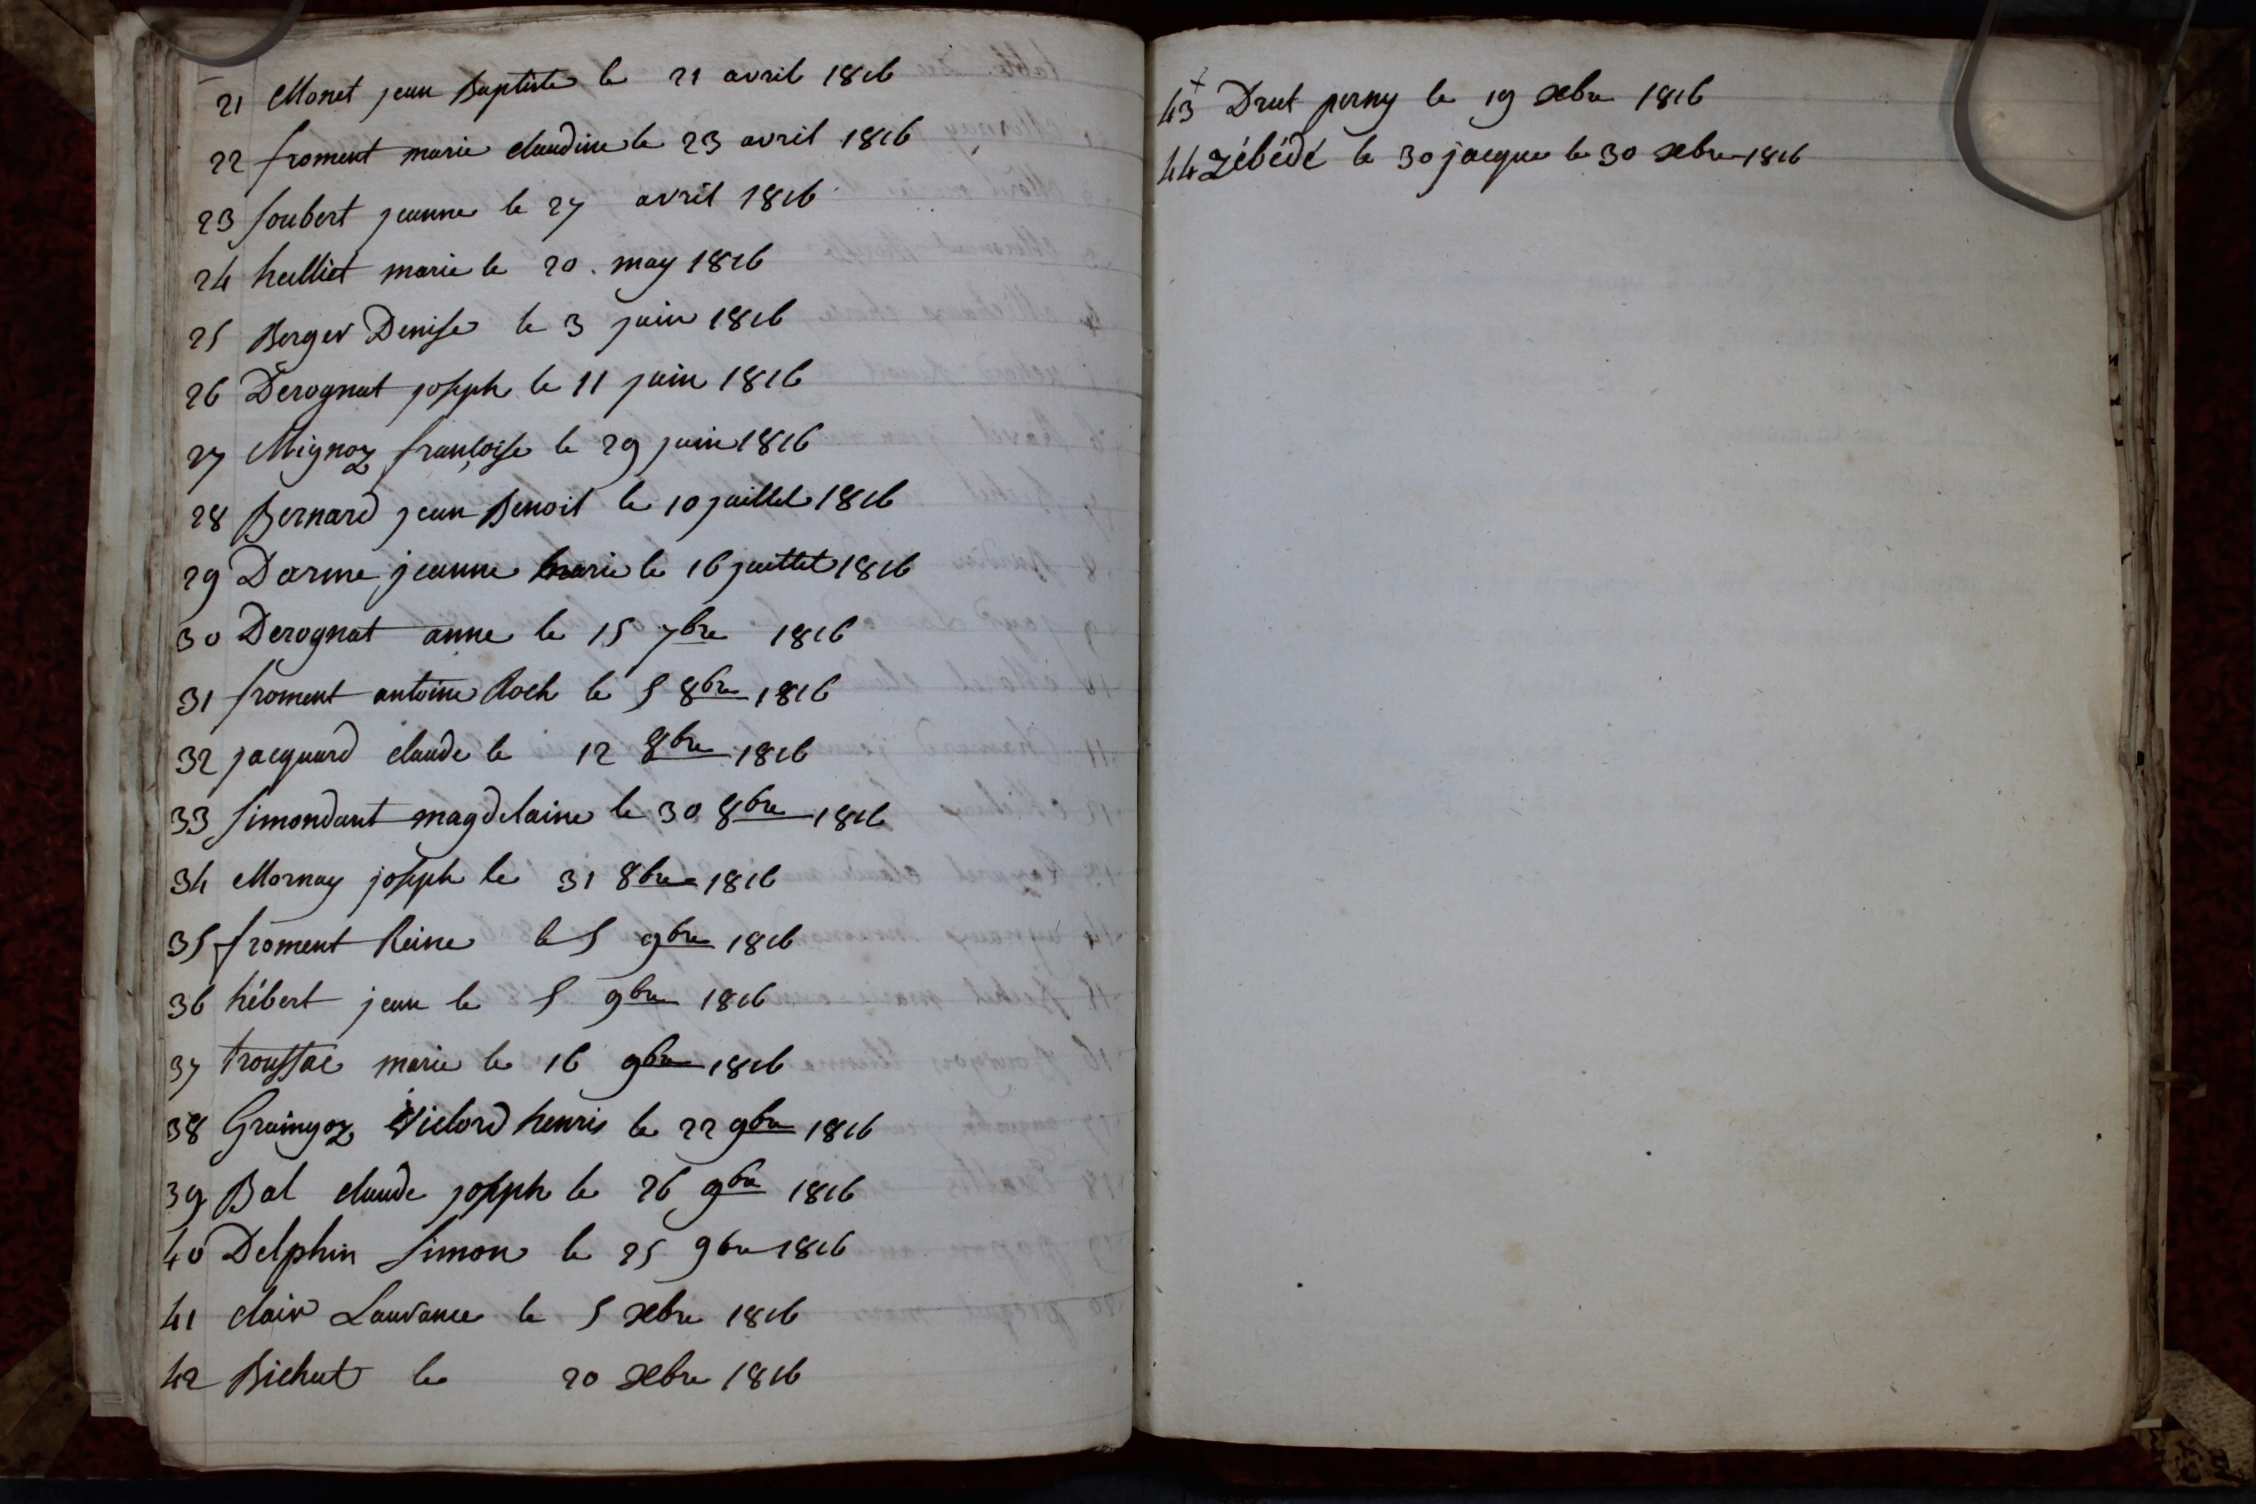 21 Monet jean Baptiste le 21 avril 1816
22 froment marie claudine le 23 avril 1816
23 Joubert jeanne le 27 avril 1816
24 hulliet marie le 20 may 1816
25 Berger Denise le 3 juin 1816
26 Derognat joseph le 11 juin 1816
27 Mignoz françoise le 29 juin 1816
28 Bernard jean Benoit le 10 juillet 1816
29 Darme jeanne marie le 16 juillet 1816
30 Derognat anne le 15 7bre 1816
31 froment antoine Roch le 5 8bre 1816
32 jacquard claude le 12 8bre 1816
33 Simondant magdelaine le 30 8bre 1816
34 Mornay joseph le 31 8bre 1816
35 froment Reine le 5 9bre 1816
36 hébert jean le 5 9bre 1816
37 troussac marie le 16 9bre 1816
38 Victord henris le 22 9bre 1816
39 Bal claude joseph le 26 9bre 1816
40 Delphin Simon le 25 9bre 1816
41 clair Laurance le 5 xebre 1816
42 Bichat le 20 xebre 1816
43 Drut perny le 19 xebre 1816
44 Zébédé le 30 jacque le 30 xebre 1816